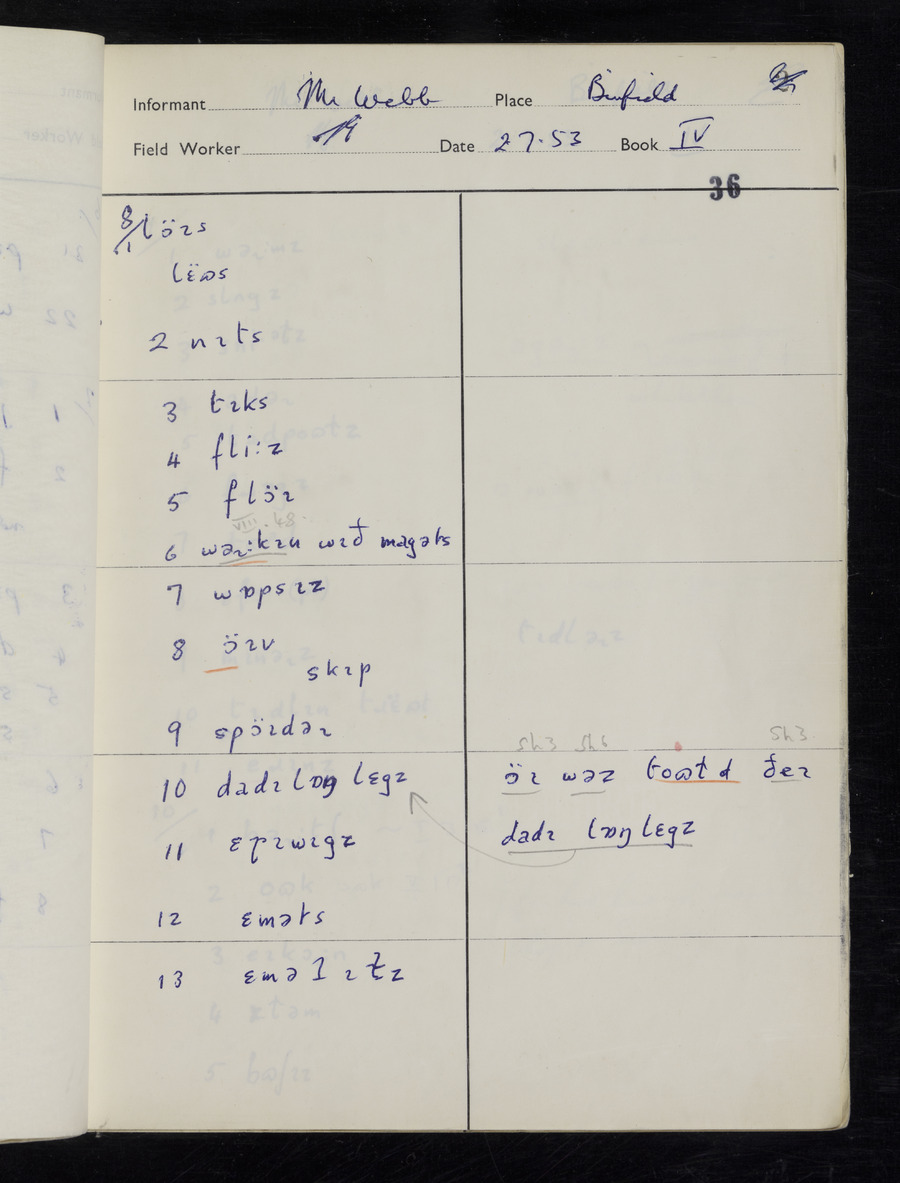 Informant Mr Webb Place Binfield
Field Worker Date 27·53 Book IV
36
8/1 lɔ̈ɪs
lɛ̈ʊs
2 nɪts
3 tɪks
4 fli:z
5 flɔ̈ɪ
VIII.48.
6 wəɹ:kɪn wɪð magəts
7 wɒpsɪz
8 ɔ̈ɪv
skɪp
9 spɔ̈ɪdəɹ
sh3 sh6 sh3.
10 dadɪ lɒŋ lɛgz ɔ̈ɪ wəz toʊɫd ðeɪ
dadɪ lɒŋ lɛgz
11 ɛɪɹwɪgz
12 ɛməts
13 ɛmə ɪɫz